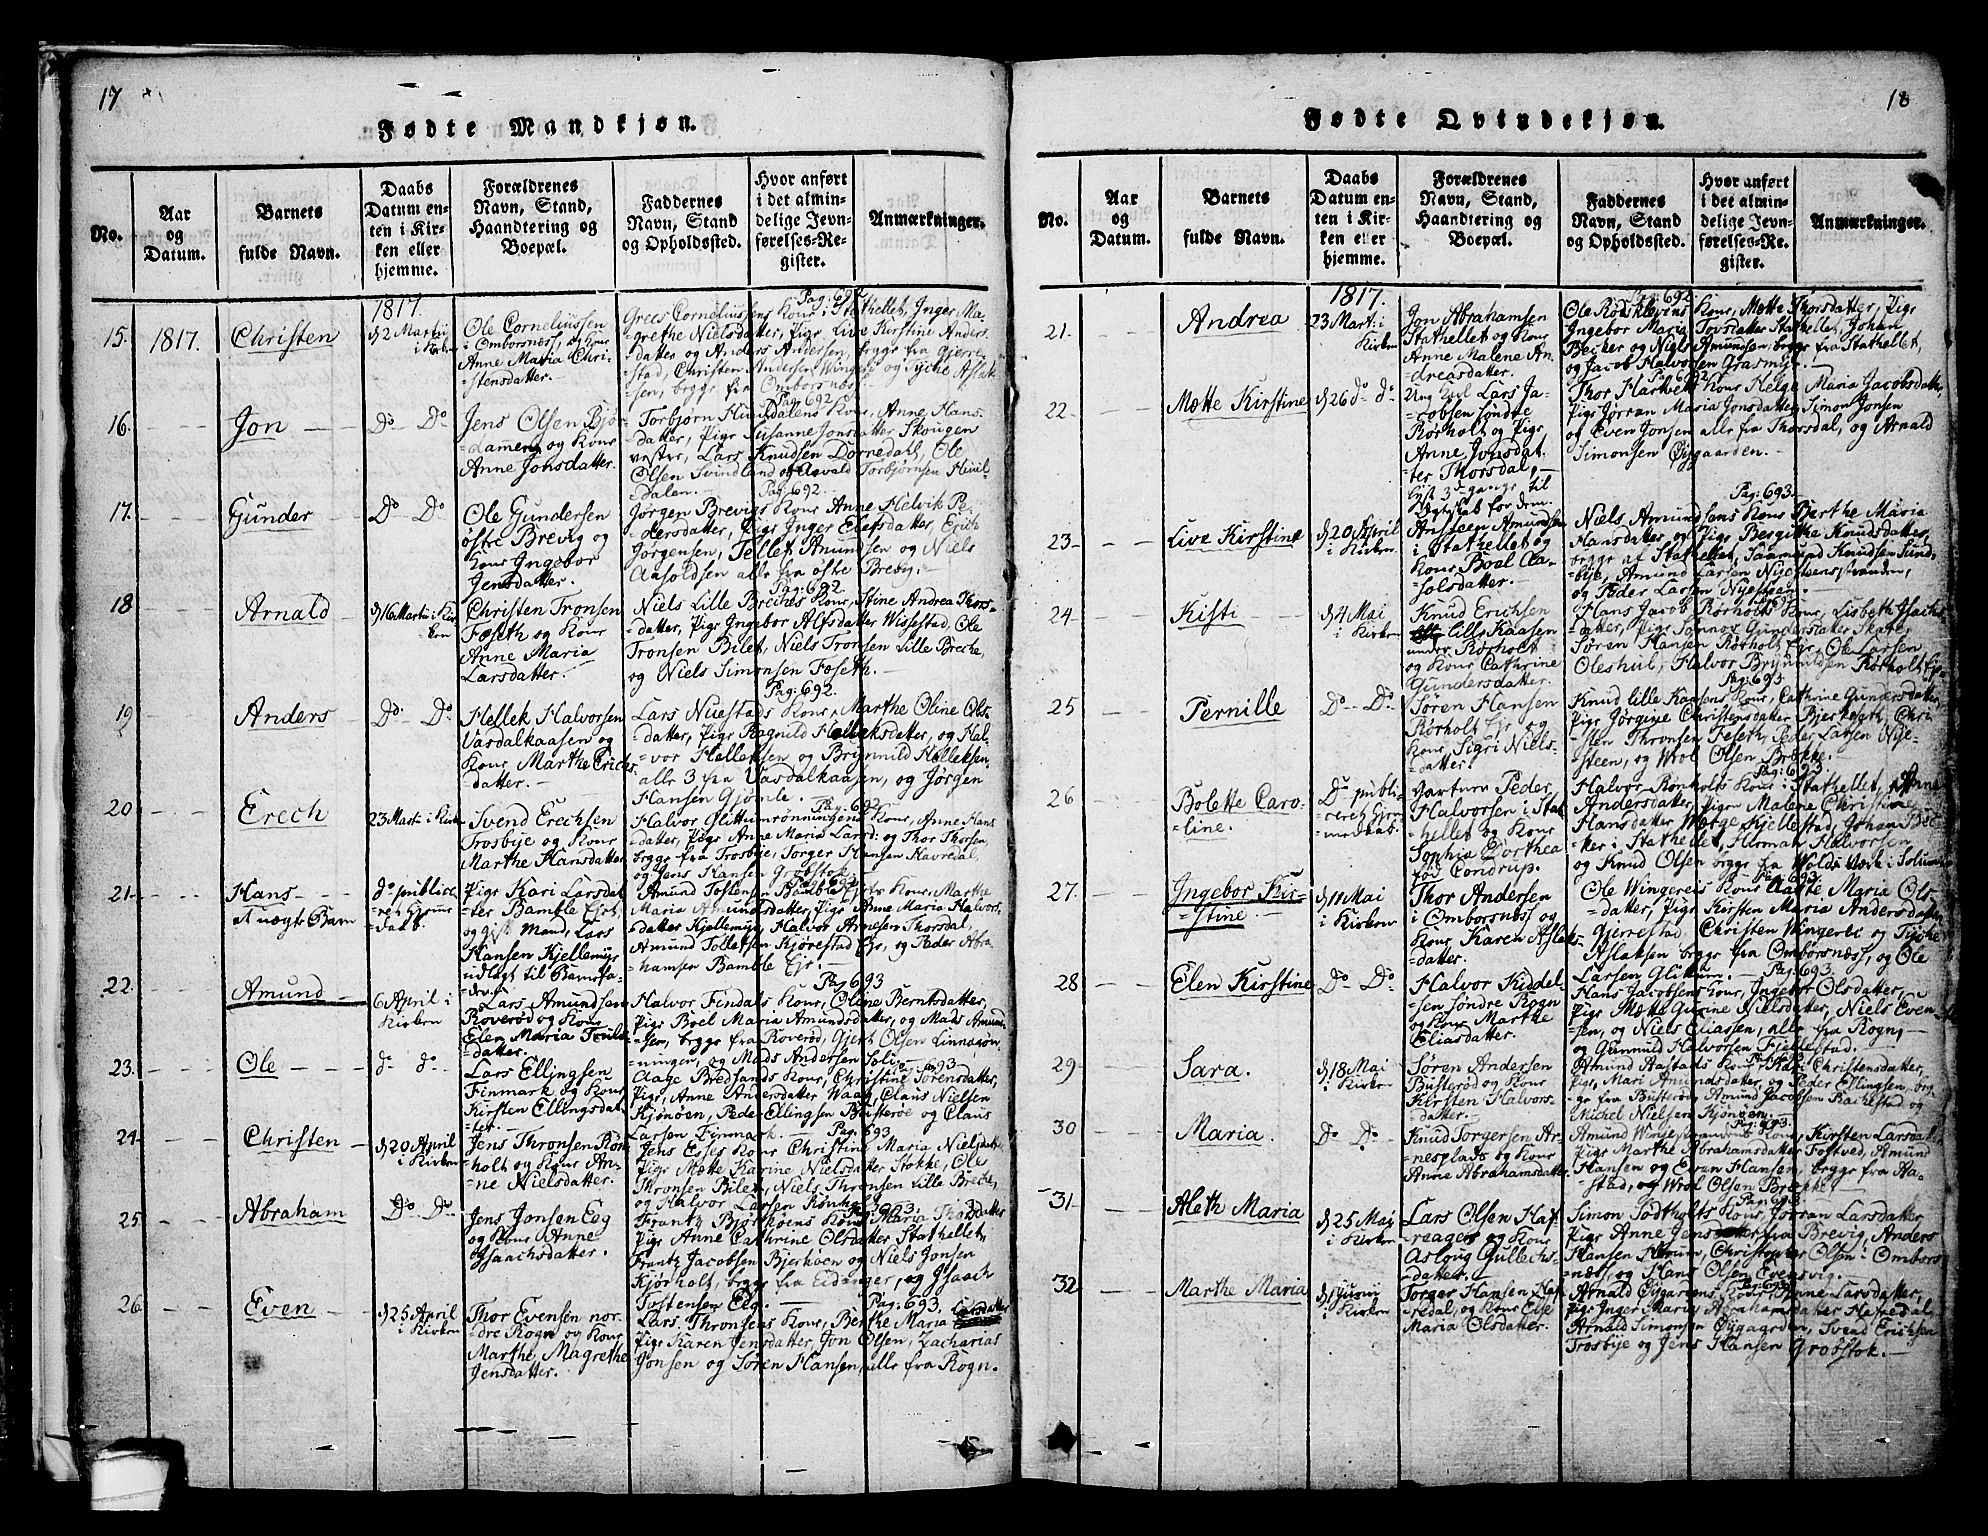 17
Fødte Mandkjøn.
No.
Aar
og
Datum.
Barnets
fulde Navn.
Daabs
Datum en-
ten i Kir-
ken eller
hjemme.
Forældrenes
Navn, Stand,
Haandtering og
Boepæl.
Faddernes
Navn, Stand
og Opholdssted.
Hvor anført
i det almin-
delige Jevn-
førelses-Re-
gister.
Anmærkninger.
15.
1817.
Christen
1817.
d 2 Martii
i Kirken
Ole Corneliussen
i Omborsnæs, og Kone
Anne Maria Chri-
stensdatter.
Pag: 692
Grees Corneliussens Kone i Stathellet, Inger Ma-
grethe Nielsdatter, Pige Live Kirstine Anders-
datter og Anders Andersen, begge fra Gjerre-
stad, Christen Andersen Wingerei og Tyche Aslak-
sen, begge fra Omborsnæs.
16.
Jon
Do Do
Jens Olsen Bjø-
dameren og Kone
Anne Jonsdatter.
Pag: 692
Torbjørn Hunsdalens Kone, Anne Hans-
datter, Pige Susanne Jonsdatter Skougen
vester, Lars Knudsen Dørnedalt, Ole
Olsen Svindland og Aavald Torbjørnsen Hun-
dalen.
17.
Gunder
Do Do
Ole Gundersen
østre Brevig og
Kone Ingebor
Jensdatter.
Pag: 692.
Jørgen Brevigs Kone Anne Helvik Pe-
dersdatter, Pige Inger Elefsdatter, Erich
Jørgensen, Tellef Amundsen og Niels
Aasoldsen alle fra østre Brevig.
18
Arnald
d 16 Marti i Kir-
ken
Christen Tronsen
Foseth og Kone
Anne Maria
Larsdatter.
Pag: 692
Niels Lille Breches Kone, Stine Andrea Thors-
datter, Pige Ingebor Alfsdatter Wissestad, Ole
Tronsen Bilet, Niels Tronsen Lille Breche,
og Niels Simonsen Foseth.
19
Anders
Do Do
Hellek Halvorsen
Vasdalkaasen og
Kone Marthe Erichs-
datter.
Pag: 692.
Lars Nuestads Kone, Marthe Oline Ols-
datter, Pige Ragnild Helleksdatter, og Hal-
vor Helleksen og Brynnild Helleksen,
alle 3 fra Vasdalkaasen, og Jørgen
Hansen Gjømle.
20
Erech
23 Marti i Kirken
Svend Erechsen
Trosbye og Kone
Marthe Hansdatter
Pag: 692
Halvor Glittumrønningens Kone, Anne Hans
datter, Pige Anne Maria Larsd: og Thor Thorsen,
begge fra Trosbye, Torger Hansen Havredal,
og Jens Hansen Grobstok.
21.
Hans
et uægte Barn
do publice-
ret Hjemme
daab.
Pige Kari Larsdat-
ter Bamble Ejrs,
og gift Mand, Lars
Hansen Kjellemyr
udlagt til Barnefa-
der.
Amund Tostensen Bamble Ejers Kone, Marthe
Maria Amundsdatter, Pige Anne Maria Halvors-
datter Kjellemyr, Halvor Arnesen Thorsdal,
Amund Tollefsen Kjørestad Ejr, og Peder Abra-
hamsen Bamble Ejr.
22.
Amund
6 April i
Kirken
Lars Amundsen
Roverød og Kone
Elen Maria
datter.
Pag: 693
Halvor Findals Kone, Oline Berntsdatter,
Pige Boel Maria Amundsdatter, og Mads Amund-
sen, begge fra Roverød, Gjert Olsen Linnarøn-
ningen, og Mads Andersen Solie.
23.
Ole
do do
Lars Ellingsen
Finmark og Kone
Kirsten Ellingsdat-
ter.
693
Aage Bredsands Kone, Christine Sørensdatter,
Pige, Anne Andersdatter Waag, Claus Nielsen
Kjønøen, Peder Ellingsen Busterøe og Claus
Larsen Finmark.
24
Christen
d 20 April
i Kirken
Jens Thronsen Røn-
holt og Kone An-
ne Nielsdatter.
Pag: 693
Jens Eses Kone Christine Maria Nielsdatter
Pige Mette Karine Nielsdatter Stokke, Ole
Thronsen Bilet, Niels Thronsen Lille Breche,
og Halvor Larsen Rønholt.
25
Abraham
Do Do
Jens Jonsen Eeg
og Kone Anne
Isaachsdatter.
Pag: 693.
Frantz Bjørkøens Kone Maria Thorsdatter
Pige Anne Cathrine Olsdatter Stathellet,
Frantz Jacobsen Bjerkøen og Niels Jonsen
Kjørholt, begge fra Eidanger, og Isaach
Tostensen Eeg.
26
Even
d 25 April
i Kirken
Thor Evensen nor-
dre Rogn og Kone
Marthe Magrethe
Jensdatter.
Pag: 693.
Lars Thronsens Kone, Berthe Maria Larsdatter
Pige Karen Jensdatter, Jon Olsen, Zacharias
Jonsen og Søren Hansen, alle fra Rogn.
18
Fødte Qvindekjøn.
No.
Aar
og
Datum.
Barnets
fulde Navn.
Daabs
Datum en-
ten i Kir-
ken eller
hjemme.
Forældrenes
Navn, Stand,
Haandtering og
Boepæl.
Faddernes
Navn, Stand
og Opholdssted.
Hvor anført
i det almin-
delige Jevn-
førelses-Re-
gister.
Anmærkninger.
21.
Andrea
1817.
23 Mart: i
Kirken
Jon Abrahamsen
Stathellet og Kone
Anne Malene An-
dreasdatter.
Pag: 692
Ole Rødsklevens Kone, Mette Thorsdatter, Pige
Ingebor Maria Tovsdatter Stathellet, Johan
Becker og Niels Amundsen, begge fra Stathellet,
og Jacob Halvorsen Grasmyr.
22
Mette Kirstine
d 26 do do
Ung Karl Lars Ja-
cobsen søndre
Rørholt og Pige
Anne Jonsdat-
ter Thorsdal,
lyst 3de gange til
Ægteskab for dem.
692
Thor Harvels Kone Helge Maria Jacobsdatter,
Pige Jorran Maria Jonsdatter, Simon Jonsen
og Even Jonsen alle fra Thorsdal, og Arnald
Simonsen Øygaarden.
23
Live Kirstine
d 20 April
i Kirken
Ansteen Amundsen
i Stathellet og
Kone Boel Aa-
solsdatter.
Pag: 693.
Niels Amundsens Kone Berthe Maria
Hansdatter og Pige Bergithe Knudsdatter,
begge af Stathellet, Saamund Knudsen Sund-
bye, Amund Larsen Nyesteensstranden,
og Peder Larsen Nyesteen.
24
Kisti
d 4 Mai
i Kirken
Knud Erichsen
lille Kaasen
under Rørholt
og Kone Cathrine
Gundersdatter.
Hans Jacob Rørholts Kone, Lisbeth Isachs-
datter, Pige Sønnov Gundersdatter Skate,
Søren Hansen Rørholt Ejr, Ole Larsen
Oleshul, Halvor Brynnildsen Rørholt Ejr.
25
Pernille
Do Do
Søren Hansen
Rørholt Ejr og
Kone, Sigri Niels-
datter.
Pag: 693
Knud lille Kaasens Kone, Cathrine Gundersdatter,
Pige Jørgine Christensdatter Bjerkeseth, Chri-
sten Thronsen Foseth, Peder Larsen Nye-
steen, og Wrol Olsen Brække.
26
Bolette Caro-
line.
Do publi-
ceret Hjem-
medaab
Vartum Peder
Halvorsen i Stat-
hellet og Kone
Sophia Dorthea
fød Condrup.
Pag: 693
Halvor Rønholts Kone i Stathellet, Anne
Andersdatter, Pige Malene Christine
Hansdatter Worge, Kjellestad, Johan Bec-
ker i Stathellet, Herman Halvorsen
og Knud Olsen begge fra Wolds Værk i Solum.
27
Ingebor Kir-
stine.
d 11 Mai
i Kirken
Thor Andersen
i Omborsnæs og
Kone Karen Aslaks-
datter.
Pag: 693.
Ole Wingereis Kone Aaste Maria Ols-
datter, Pige Kirsten Maria Andersdatter
Gjerrestad Christen Wingerei og Tyche
Aslaksen begge fra Omborsnæs, og Ole
Larsen Glittum.
28
Elen Kirstine
Do Do
Halvor Kiddel-
sen søndre Rogn
og Kone Marthe
Eliasdatter.
Pag: 693.
Hans Jacobsens Kone, Ingebor Olsdatter,
Pige Mette Gurine Nielsdatter, Niels Even-
sen, og Niels Eliassen, alle fra Rogn,
og Gunnuld Halvorsen Fjellestad.
29
Sara.
d 18 Mai
i Kirken
Søren Andersen
Busterød og Kone
Kirsten Halvors-
datter.
Amund Aastads Kone, Kari Christensdatter,
Pige, Mari Amundsdatter, og Peder Ellingsen, beg-
ge fra Busterøe, Amund Jacobsen Rachestad og
Michel Nielsen Kjønøen.
30
Maria.
Do Do
Knud Torgersen Ar-
nesplads og Kone
Anne Abrahamsdatter.
Pag: 693.
Amund Wingestrandens Kone, Kirsten Larsdatter
Pige Marthe Abrahamsdatter Fostved, Amund
Hansen og Even Hansen, begge fra Aa-
stad, og Wrol Olsen Brække.
31
Aleth Maria
d 25 Mai
i Kirken
Lars Olsen Haf-
reager og Kone
Asloug Gullechs-
datter.
Pag: 693.
Simon Todtholts Kone, Jorran Larsdatter,
Pige Anne Jensdatter fra Brevig, Anders
Hansen Herum, Christopher Olsen i Ombors-
næss, og Hans Olsen Evensvig.
32
Marthe Maria
d 1 Junii
i Kirken
Torger Hansen Haf-
redal, og Kone Else
Maria Olsdatter.
Pag: 693
Arnald Øygardens Kone Anne Larsdatter,
Pige Inger Maria Abrahamsdatter Hafredal
Arnald Simonsen Øygaarden, Svend Erichsen
Trosbye og Jens Hansen Grobstok.